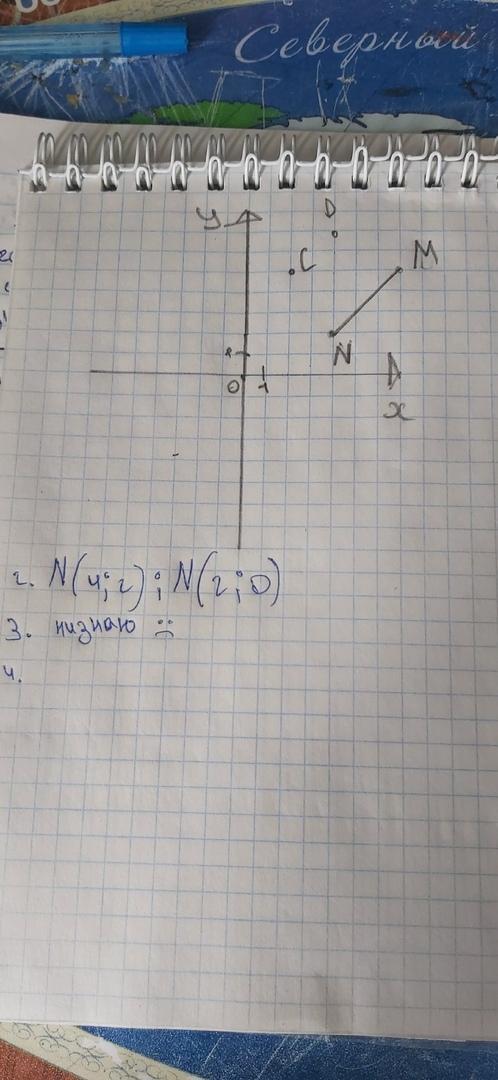 Северный
У
D
C
M
N
0
1
x
2. N(4;2); N(2;0)
3. низнаю :(
4.